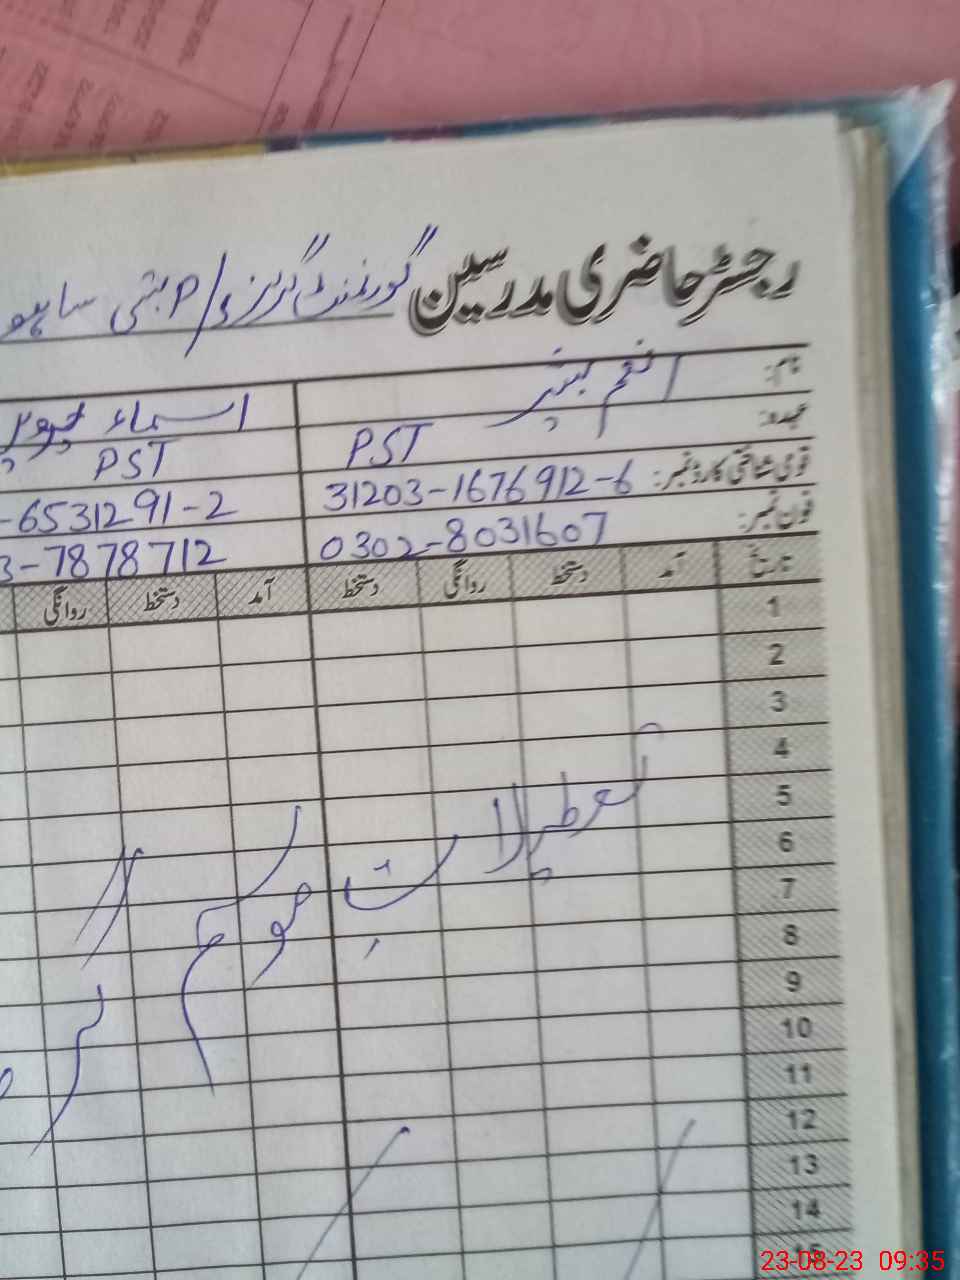 رجسٹر حاضری مدرسین گورنمنٹ گرلز
نام: انعم
اسماء
عہدہ: PST
PST
قومی شناختی کارڈ نمبر: 31203-1676912-6
-6531291-2
فون نمبر: 0302-8031607
3-7878712
تاریخ آمد دستخط روانگی دستخط آمد دستخط روانگی
1
2
3
4
5
6
7
8
9
10
11
12
13
14
15
تعطیلات موسم گرما
23-08-23 09:35